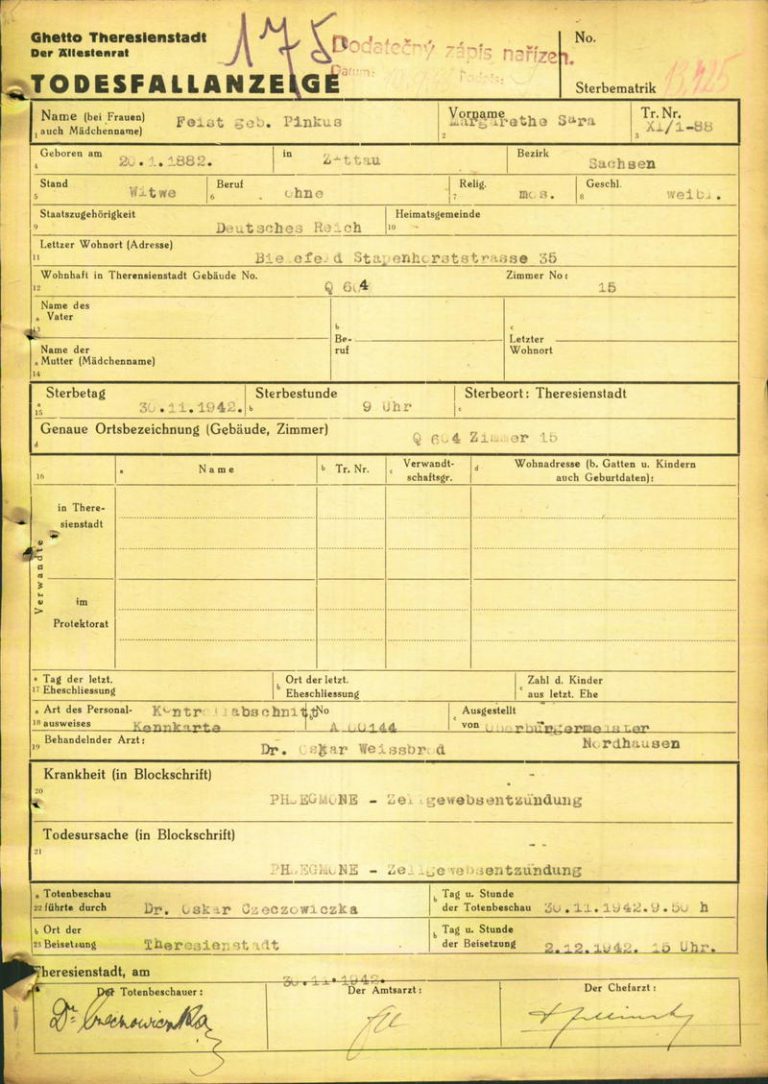 Ghetto Theresienstadt
Der Ältestenrat
TODESFALLANZEIGE
175
Dodatečný zápis nařízen.
Datum: Podpis:
No.
Sterbematrik 13,425
Name (bei Frauen) Feist geb. Pinkus Vorname Margarethe Sara Tr. Nr.
1 auch Mädchenname) 2 3 XI/1-88
Geboren am 20.1.1882. in Zittau Bezirk Sachsen
4
Stand Witwe Beruf ohne Relig. mos. Geschl. weibl.
5 6 7 8
Staatszugehörigkeit Deutsches Reich Heimatsgemeinde
9 10
Lettzer Wohnort (Adresse)
11 Bielefeld Stapenhorststrasse 35
Wohnhaft in Therensienstadt Gebäude No. Q 604 Zimmer No: 15
12
Name des
a Vater
13
b Be-ruf
c Letzter Wohnort
Name der
a Mutter (Mädchenname)
14
a Sterbetag 30.11.1942. b Sterbestunde 9 Uhr c Sterbeort: Theresienstadt
15
Genaue Ortsbezeichnung (Gebäude, Zimmer) Q 604 Zimmer 15
d
16 a Name b Tr. Nr. c Verwandt-schaftsgr. d Wohnadresse (b. Gatten u. Kindern auch Geburtdaten):
Verwandte
in There-
sienstadt
im
Protektorat
a Tag der letzt. b Ort der letzt. c Zahl d. Kinder
17 Eheschliessung Eheschliessung aus letzt. Ehe
a Art des Personal- Kontrollabschnitt b No c Ausgestellt
18 ausweises Kennkarte A 00144 von Oberbürgermeister
Nordhausen
19 Behandelnder Arzt: Dr. Oskar Weissbrod
Krankheit (in Blockschrift)
20
PHLEGMONE - Zellgewebsentzündung
Todesursache (in Blockschrift)
21
PHLEGMONE - Zellgewebsentzündung
a Totenbeschau b Tag u. Stunde
22 führte durch Dr. Oskar Czeczowiczka der Totenbeschau 30.11.1942.9.50 h
a Ort der b Tag u. Stunde
23 Beisetzung Theresienstadt der Beisetzung 2.12.1942. 15 Uhr.
Theresienstadt, am 30.11.1942.
Der Totenbeschauer: Der Amtsarzt: Der Chefarzt:
Dr. Czeczowiczka